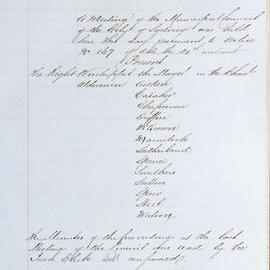 A Meeting of the Municipal Council
of the City of Sydney was held
this day pursuant to Notice
No 167 of date the instant
Present
The Right Worshipful the Mayor in the Chair
Aldermen
Caraher
Chapman
Macintosh
Sutherland
Spence
Smithers
Sutton
Speer
Steel
The Minutes of the proceedings at the last
Meeting of the Council were read by the
Town Clerk and confirmed